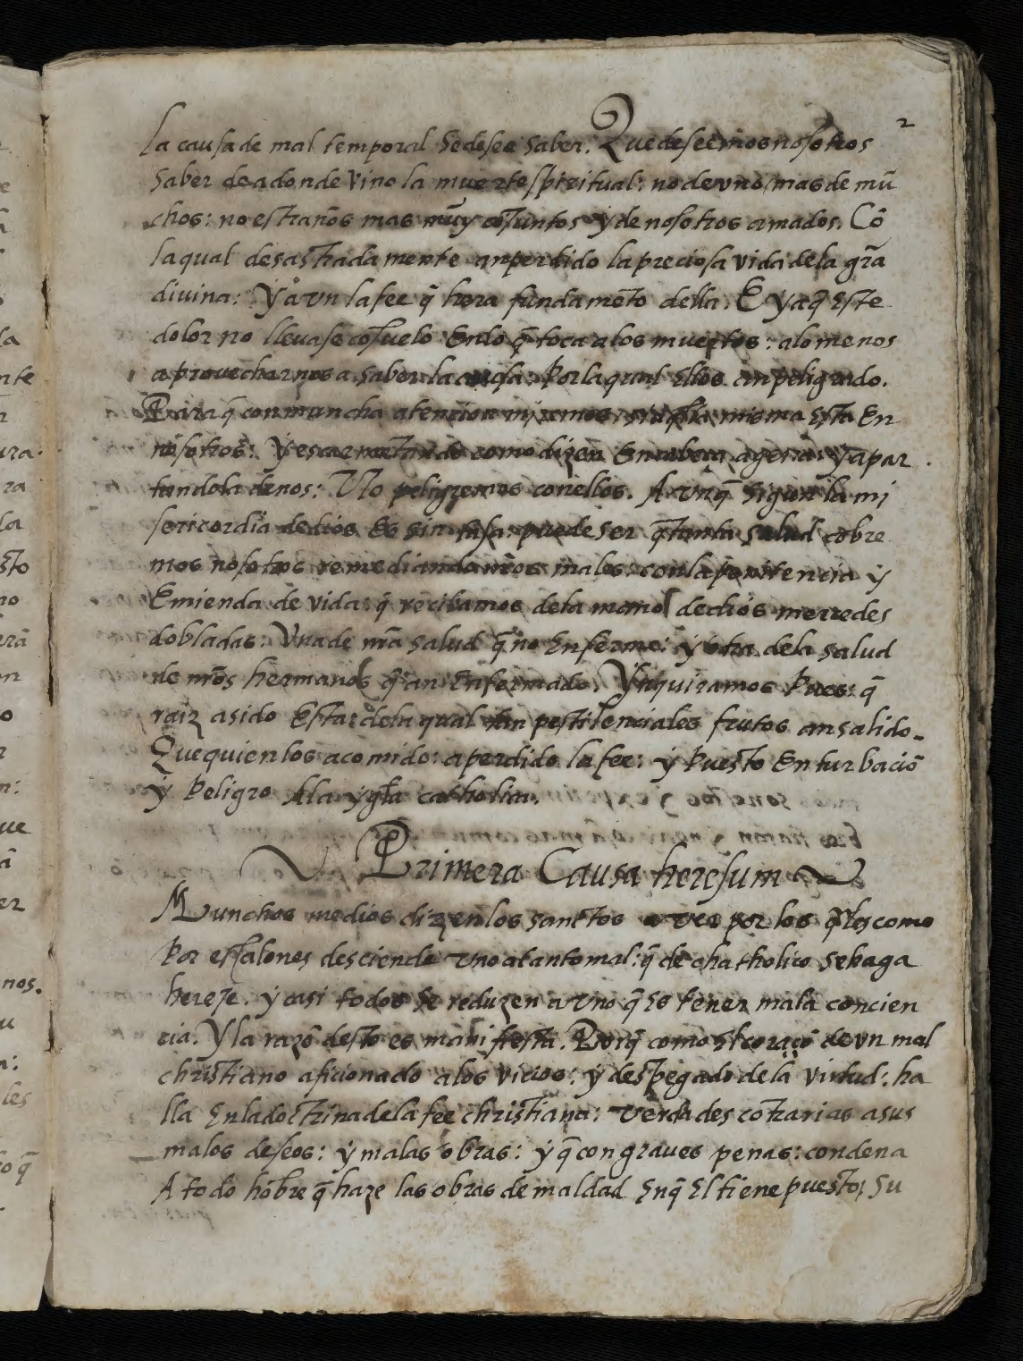 2
la causa de mal temporal se desee saber. Que deseemos nosotros
saber de adonde vino la muerte spiritual: no de vno mas de mū
chos: no estraños mas muy cōiuntos y de nosotros amados. Cō
la qual desastradamente an perdido la preciosa vida de la grā
divina: Y avn la fee q̄ hera fundamēto della. E ya q̄ este
dolor no llevase cōsuelo en lo q̄ toca a los muertos: alo menos
aprovecharnos a saber la causa: por la qual ellos an peligrado.
Para q̄ con muncha atencion miremos si aq̄lla misma esta en
nosotros: y escarmētando como dizen en cabeça agena: y apar
tandola de nos: No peligremos con ellos. A vnq̄ sigun la mi
sericordia de dios es sin tasa: puede ser q̄ tanta salud cobre
mos nosotros remediando nr̄os males con la penitencia y
emienda de vida: q̄ recibamos de la mano de dios mercedes
dobladas: Vna de nr̄a salud q̄ no enferme: y otra de la salud
de nr̄os hermanos q̄ an enfermado. Ynquiramos pues: q̄
raiz a sido esta: de la qual tan pestilenciales frutos an salido.
Que quien los a comido: a perdido la fee: y puesto en turbaciō
y peligro a la ygl̄a catholica.
Primera Causa heresum
Munchos medios dizen los sanctos a ver por los q̄les como
por escalones desciende vno a tanto mal: q̄ de chatholico se haga
hereje. y casi todos se reduzen a vno q̄ es tener mala concien
cia. Y la razō desto es manifiesta. Porq̄ como el coraçō de vn mal
christiano aficionado a los vicios: y despegado de la virtud: ha
lla en la doctrina de la fee christiana: verdades cōtrarias a sus
malos deseos: y malas obras: y q̄ con graues penas: condena
A todo hōbre q̄ haze las obras de maldad en q̄ el tiene puesto, su